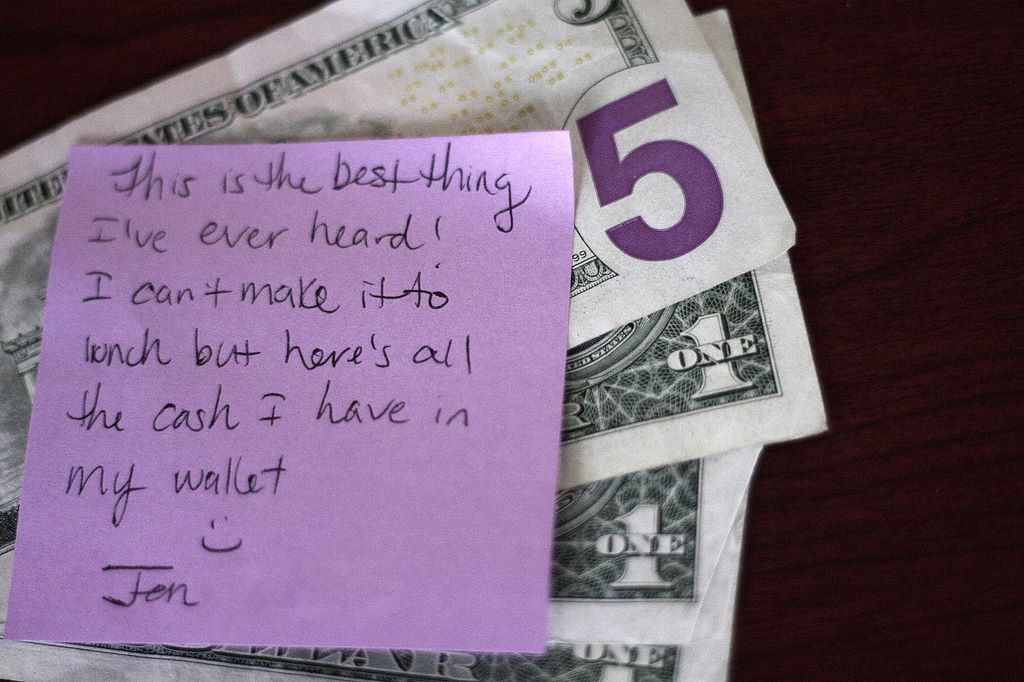 UNITED STATES OF AMERICA
5
5
This is the best thing
I've ever heard!
I can't make it to
lunch but here's all
the cash I have in
my wallet
:)
Jen
99
UNITED STATES
1
ONE
1
ONE
ONE